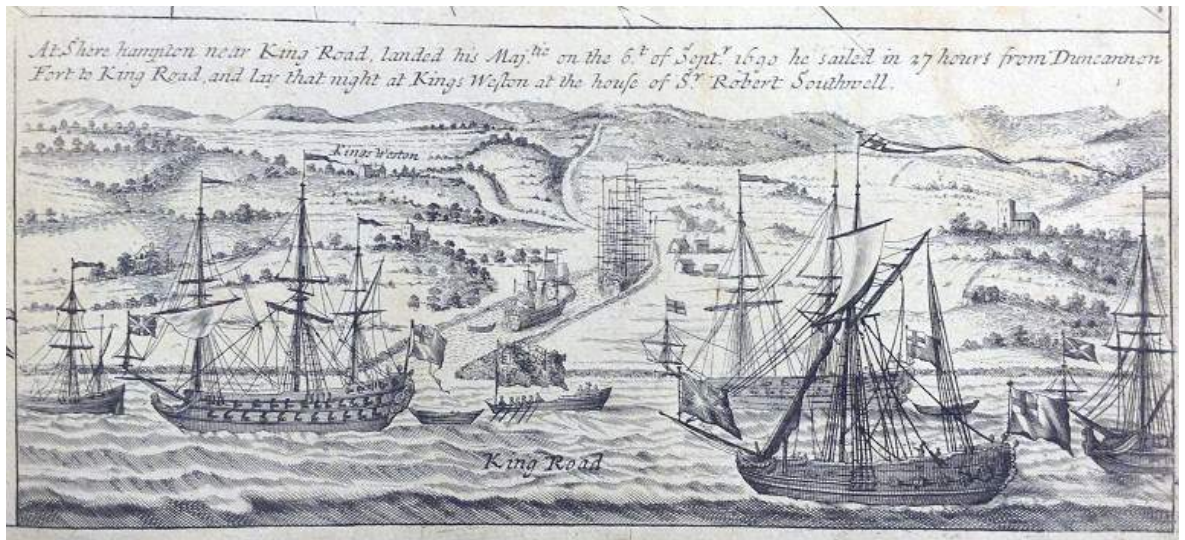 At Shere hampton near King Road, landed his Maj.tie on the 6.t of Sept.r 1690 he sailed in 27 hours from Duncannon
Fort to King Road, and lay that night at Kings Weston at the house of S.r Robert Southwell.
Kings Weston
King Road